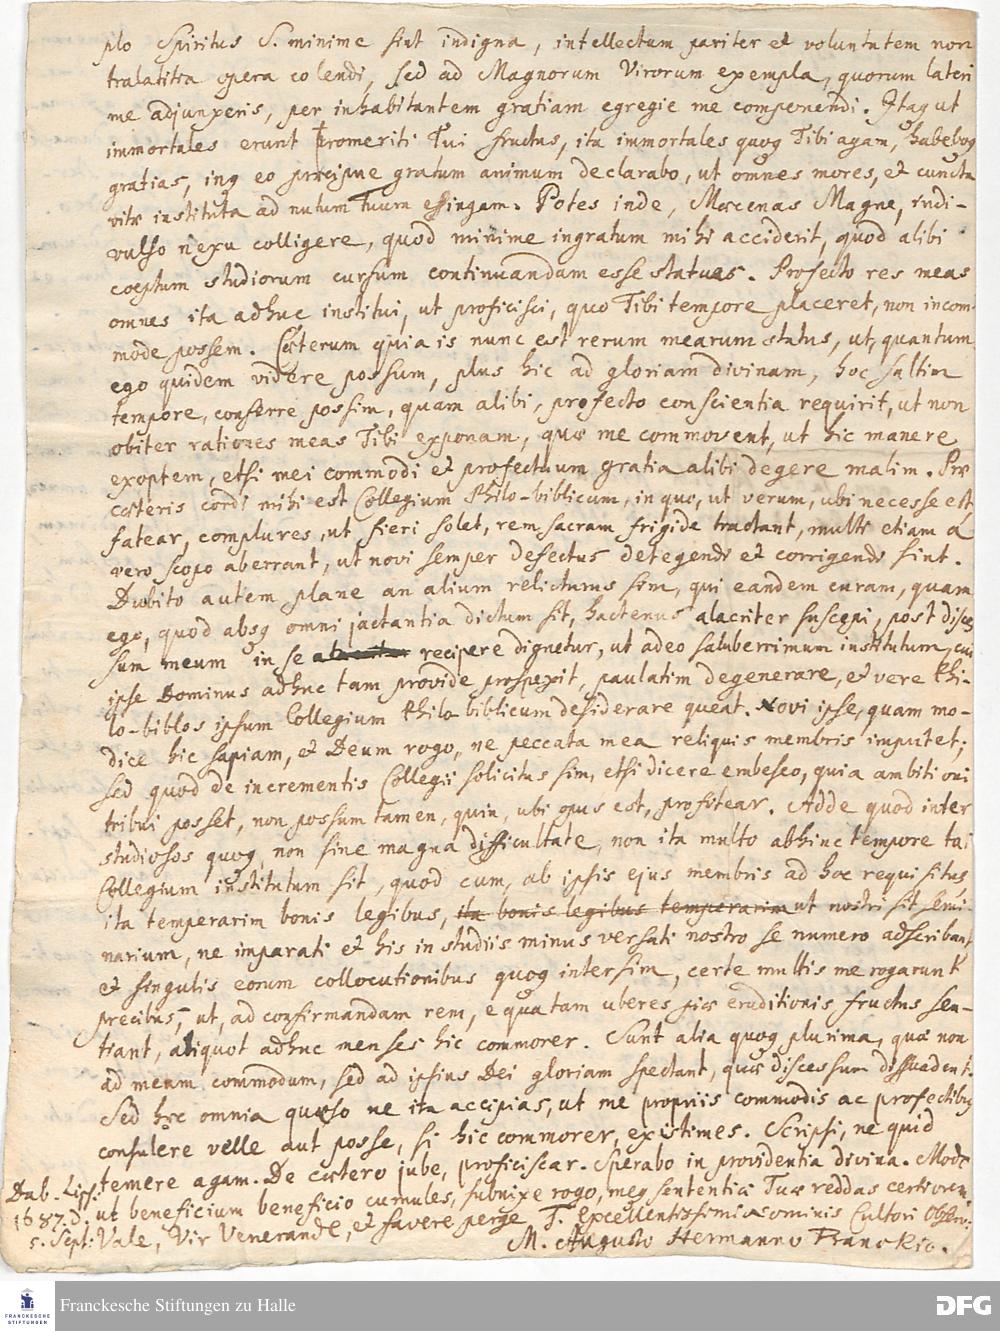 plo Spiritus S. minime sint indigna, intellectum pariter et voluntatem non
tralatitia opera colendi, sed ad Magnorum Virorum exempla, quorum lateri
me adjunxeris, per inhabitantem gratiam egregie me componendi. Itaq ut
immortales erunt promeriti Tui fructus, ita immortales quoq Tibi agam, habeboq
gratias, inq eo præcipue gratum animum declarabo, ut omnes mores, et cuncta
vitæ instituta ad nutum Tuum effingam. Potes inde, Mœcenas Magne, indi-
vulso nexu colligere, quod minime ingratum mihi acciderit, quod alibi
cœptum studiorum cursum continuandam esse statuas. Profecto res meas
omnes ita adhuc institui, ut proficisci, quo Tibi tempore placeret, non incom-
mode possem. Cæterum quia is nunc est rerum mearum status, ut, quantum
ego quidem videre possum, plus hic ad gloriam divinam, hoc saltim
tempore, conferre possim, quam alibi, profecto conscientia requirit, ut non
obiter rationes meas Tibi exponam, quæ me commovent, ut hic manere
exoptem, etsi mei commodi et profectuum gratia alibi degere malim. Præ
cæteris cordi mihi est Collegium Philo-biblicum, in quo, ut verum, ubi necesse est
fatear, complures, ut fieri solet, rem sacram frigide tractant, multi etiam a
vero scopo aberrant, ut novi semper defectus detegendi et corrigendi sint.
Dubito autem plane an alium relicturus sim, qui eandem curam, quam
ego, quod absq omni jactantia dictum sit, hactenus alacriter suscepi, post disces
sum meum in se recipere dignetur, ut adeo saluberrimum institutum, cui
ipse Dominus adhuc tam provide prospexit, paulatim degenerare, et vere Phi-
lo-biblos ipsum Collegium Philo biblicum desiderare queat. Novi ipse, quam mo-
dice hic sapiam, et Deum rogo, ne peccata mea reliquis membris imputet;
sed quod de incrementis Collegii solicitus sim, etsi dicere erubesco, quia ambitioni
tribui posset, non possum tamen, quin, ubi opus est, profitear. Adde quod inter
studiosos quoq, non sine magna difficultate, non ita multo abhinc tempore tale
Collegium institutum sit, quod cum, ab ipsis ejus membris ad hoc requisitus
ita temperarim bonis legibus, ita bonis legibus temperarim ut nostri sit semi-
narium, ne imparati et his in studiis minus versati nostro se numero adscribant
et singulis eorum collocutionibus quoq intersim, certe multis me rogarunt
precibus, ut, ad confirmandam rem, e qua tam uberes piæ eruditionis fructus sen-
tiant, aliquot adhuc menses hic commorer. Sunt alia quoq plurima, quæ non
ad meum commodum, sed ad ipsius Dei gloriam spectant, quæ discessum dissvadent.
Sed hæc omnia quæso ne ita accipias, ut me propriis commodis ac profectibus
consulere velle aut posse, si hic commorer, existimes. Scripsi, ne quid
temere agam. De cætero jube, proficiscar. Sperabo in providentia divina. Modo
ut beneficium beneficio cumules, subnixe rogo, meq sententiæ Tuæ reddas certiorem.
Vale, Vir Venerande, et favere perge T. Excellentissimi nominis Cultori Observ:
M. Augusto Hermanno Franckio.
Dab. Lips:
1687. d.
5. Sept:
Franckesche Stiftungen zu Halle
FRANCKESCHE
STIFTUNGEN
DFG